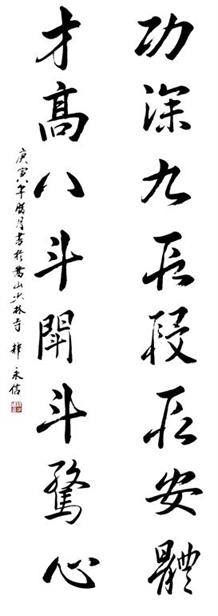 功深九段安體
才高八斗斗驚心
庚寅年臘月書於嵩山少林寺 釋永信